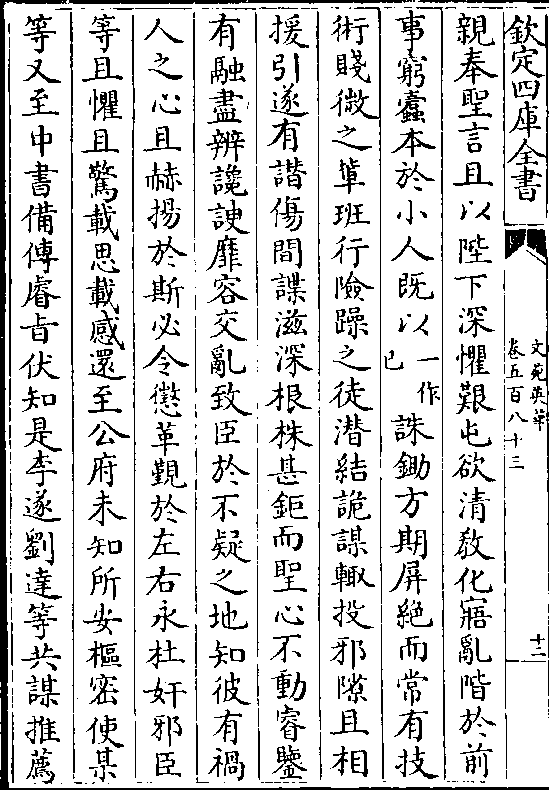 欽定四庫全書
文苑英華
卷五百八十三
十三
親奉聖言且以陛下深懼艱屯欲清敎化寤亂階於前
事窮蠹本於小人旣以一作已誅鋤方期屏絶而常有技
術賤微之軰班行險躁之徒潜結詭謀輙投邪隙且相
援引遂有譛傷間諜滋深根株甚鉅而聖心不動睿鑒
有融盡辨讒諛靡容交亂致臣於不疑之地知彼有禍
人之心且赫揚於斯必令懲革覬於左右永杜奸邪臣
等且懼且驚載思載感還至公府未知所安樞密使某
等又至中書備傳睿㫖伏知是李遂劉達等共謀推薦